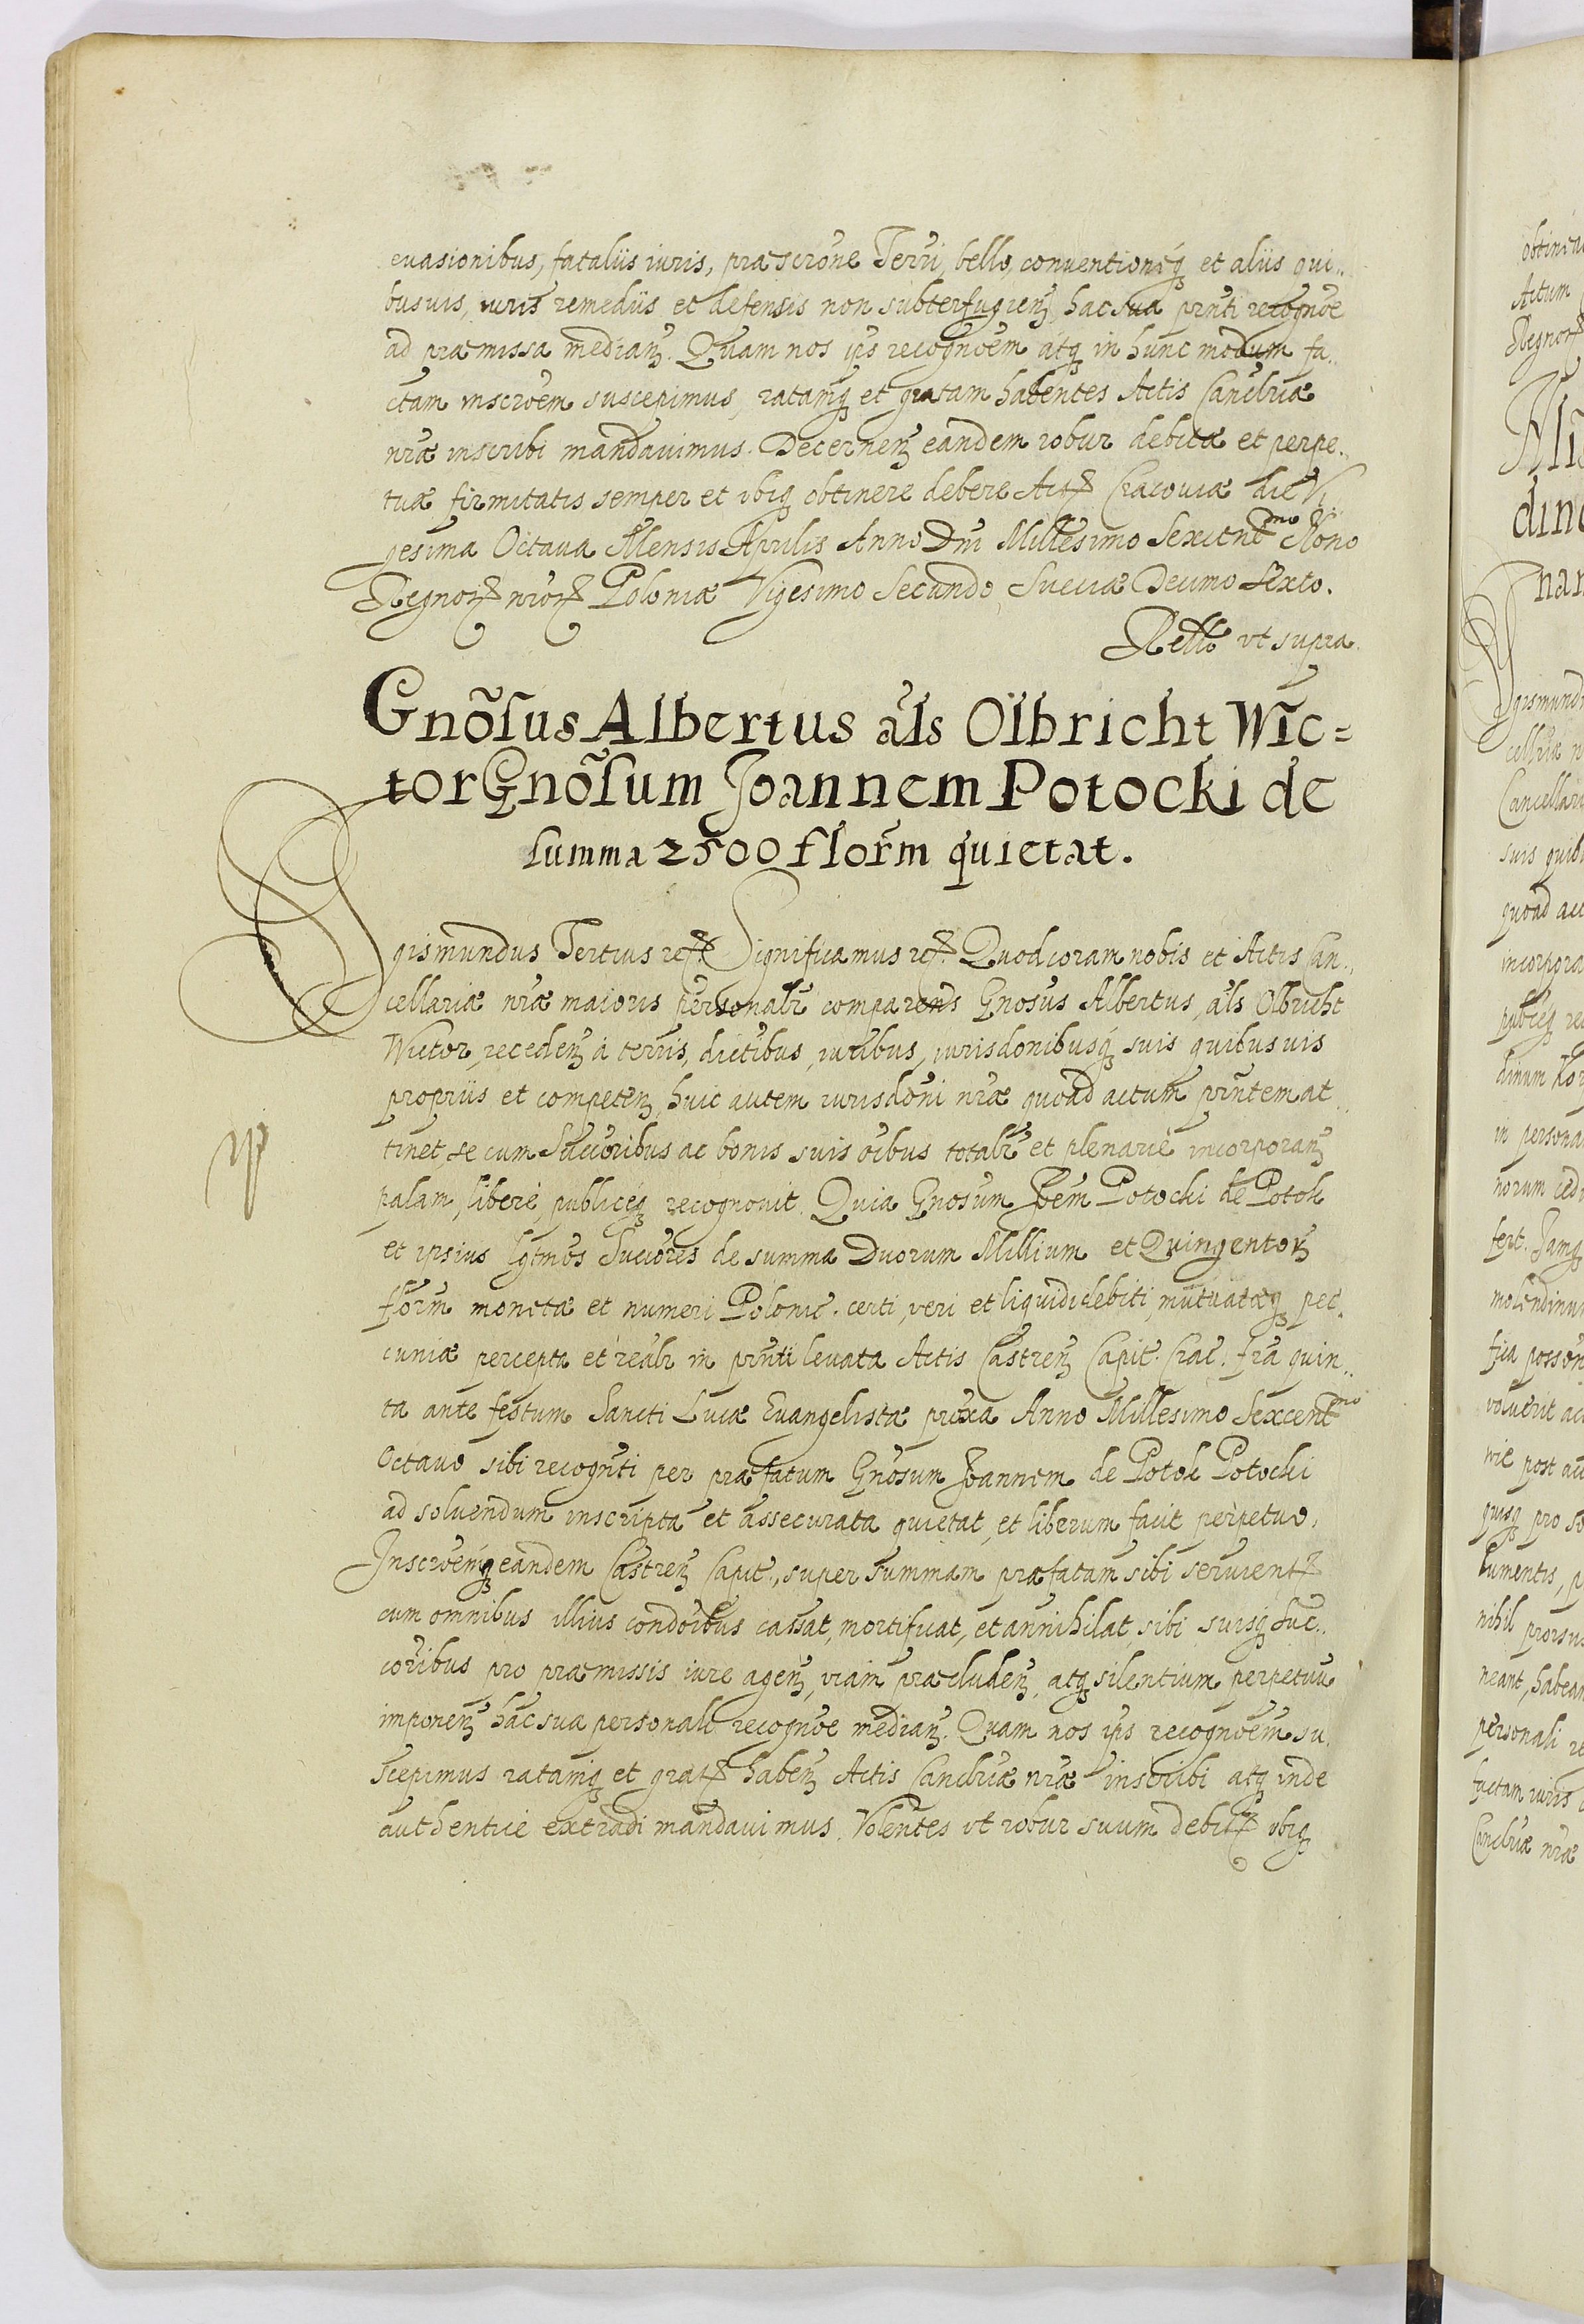 euasionibus, fataliis iuris, præscrõne Terri, bello, conuentioneq₃ et aliis qui..
busuis, iuris remediis et defensis non subterfugien₃, hac sua prñti recognõe
ad præmissa median₃. Quam nos ips recognõem atq₃ in hunc modum fa..
ctam inscrõem suscepimus, ratamq₃ et gratam habentes Actis Cancllriæ
nræ inscribi mandauimus. Decernen₃ eandem robur debitæ et perpe..
tuæ firmitatis semper et vbiq₃ obtinere debere Actꝭ Cracouiæ die Vi
gesima Octaua Mensis Aprilis Anno Dni Millesimo Sexcentmo Nono
Regnorꝭ nrorꝭ Poloniæ Vigesimo Secundo, Sueciæ Decimo Sexto.
Rello vt supra.
Gnõsus Albertus als Olbricht Wic=
tor Gnõsum Joannem Potocki de
summa 2500 florm quietat.
Sigismundus Tertius etcꝭ Significamus etcꝭ. Quod coram nobis et Actis Can..
cellariæ nræ maioris personalr comparens Gnosus Albertus, als Olbricht
Wictor, receden₃ à terris, dictibus, iuribus, iurisdonibusq₃ suis quibusuis
propriis et competen₃, huic autem iurisdoni nræ quoad actum prñtem at..
tinet, se cum Succoribus ac bonis suis oibus totalr et plenariè incorporan₃
palam, liberè, publiceq₃ recognouit. Quia Gnosum Joem Potocki de Potok
et ipsius lgtmos Succores de summa Duorum Millium et Quingentor₃
florm monetæ et numeri Polonic. certi, veri et liquidi debiti, mutuatæq₃ pec..
cuniæ percepta et realr in prñti leuata Actis Castren₃ Capit. Crac. fra quin..
ta ante festum Sancti Lucæ Euangelistæ proxa Anno Millesimo Sexcentmo
Octauo sibi recognti per præfatum Gnosum Joannem de Potok Potocki
ad soluendum inscripta et assecurata quietat, et liberum facit perpetuo,
Inscrõemq₃ eandem Castren₃ Capit., super summam præfatam sibi seruientꝭ
cum omnibus illius condoibus cassat, mortificat, et annihilat, sibi suisq₃ suc..
coribus pro præmissis iure agen₃, viam præcluden₃, atq₃ silentium perpetuu
imponen₃ hac sua personali recognõe median₃. Quam nos ips recognõem su..
scepimus ratamq₃ et gratꝭ haben₃ Actis Cancllriæ nræ inscribi atq₃ inde
authenticè extradi mandauimus. Volentes vt robur suum debitꝭ vbiq₃